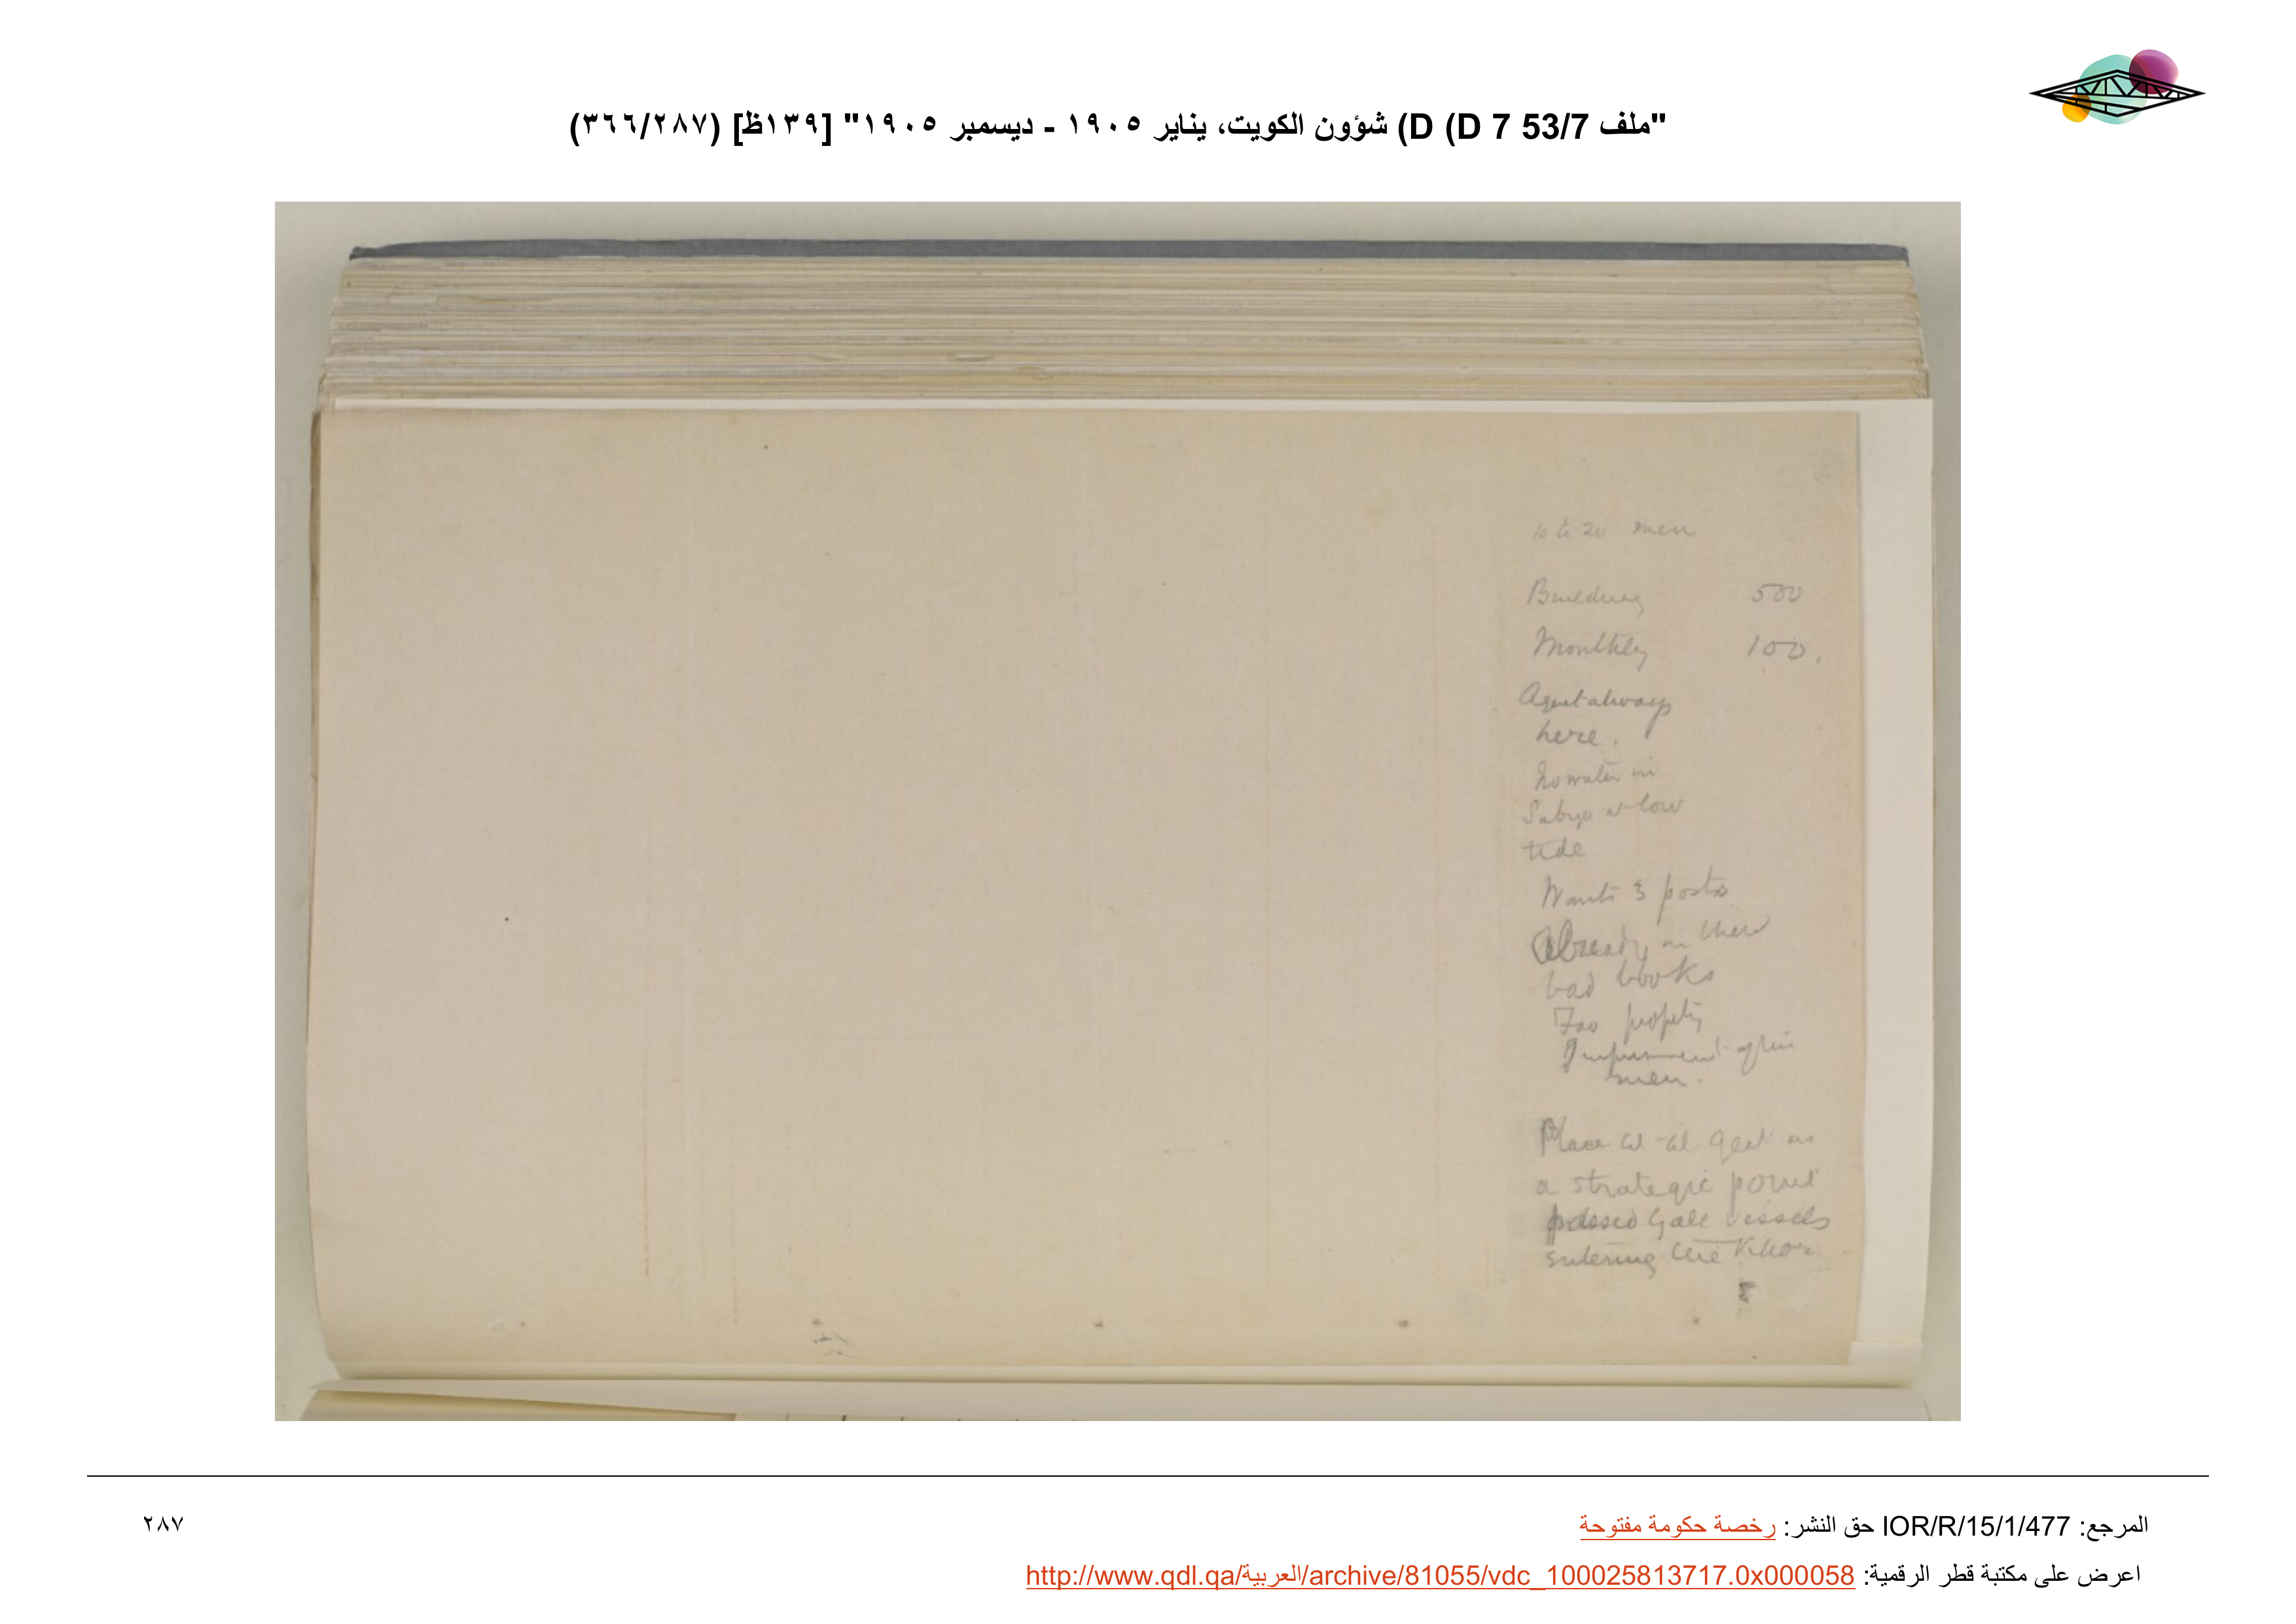 "ملف 53/7 D 7) D) شؤون الكويت، يناير ١٩٠٥ - ديسمبر ١٩٠٥" [١٣٩ظ] (٣٦٦/٢٨٧)
10 to 20 men
Building 500
Monthly 100.
Agent always
here.
No water in
Sabya at low
tide
Wants 3 posts
Already in their
bad books
Fao property
Imprisonment of his
men.
Place at al Qeet as
a strategic point
passed by all vessels
entering the Khor
المرجع: IOR/R/15/1/477 حق النشر: رخصة حكومة مفتوحة
اعرض على مكتبة قطر الرقمية: http://www.qdl.qa/العربية/archive/81055/vdc_100025813717.0x000058
٢٨٧